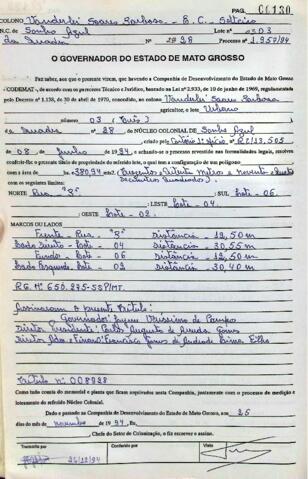 PAG. 00130
COLONO Vanderlei Soares Barbosa - B.C. - Solteiro
N.C. de Sonho Azul Lote nº 03
da Quadra Nº 28 Processo nº 1.957/94
O GOVERNADOR DO ESTADO DE MATO GROSSO
Faz saber, aos que a presente virem, que havendo a Companhia de Desenvolvimento do Estado de Mato Grosso
CODEMAT, de acordo com os pareceres Técnico e Jurídico, baseado na Lei nº 2.933, de 10 de junho de 1969, regulamentada
pelo Decreto nº 1.138, de 30 de abril de 1970, concedido ao colono Vanderlei Soares Barbosa
agricultor, o lote Urbano
número 03 (três)
da Quadra nº 28 do NÚCLEO COLONIAL DE Sonho
Azul criado pelo 13.505
de 08 de Junho de 1994, e achando-se o processo revestido das formalidades legais, resolveu
conferir-lhe o presente título de propriedade do referido lote, o qual tem a configuração de um polígono
com a área de 380,94 mts²
decímetros quadrados)
com os seguintes limites:
NORTE Rua "R" SUL Lote - 06
LESTE Lote - 04
OESTE Lote - 02
MARCOS OU LADOS
Frente - Rua - "R" distância - 12,50 m
Lado Direito - Lote - 04 distância - 30,55 m
Fundo - Lote - 06 distância - 12,50 m
Lado Esquerdo - Lote - 02 distância - 30,40 m
RG. Nº 650.275-SSP/MT.
Assinaram o presente título:
Governador: Jayme Veríssimo de Campos
Diretor Presidente: Carlos Augusto de Arruda Gomes
Diretor Adm. e Financ: Francisco Gomes de Andrade Lima Filho
Título nº 008928
Tudo como consta do memorial e planta que ficam arquivados nesta Companhia, juntamente com o processo de medição e
loteamento do referido Núcleo Colonial.
Dado e passado na Companhia de Desenvolvimento do Estado de Mato Grosso, em 25
dias do mês de novembro de 1994, Eu,
Chefe do Setor de Colonização, o fiz escrever e assino.
Transcrito por
Em
Visto
26/12/94